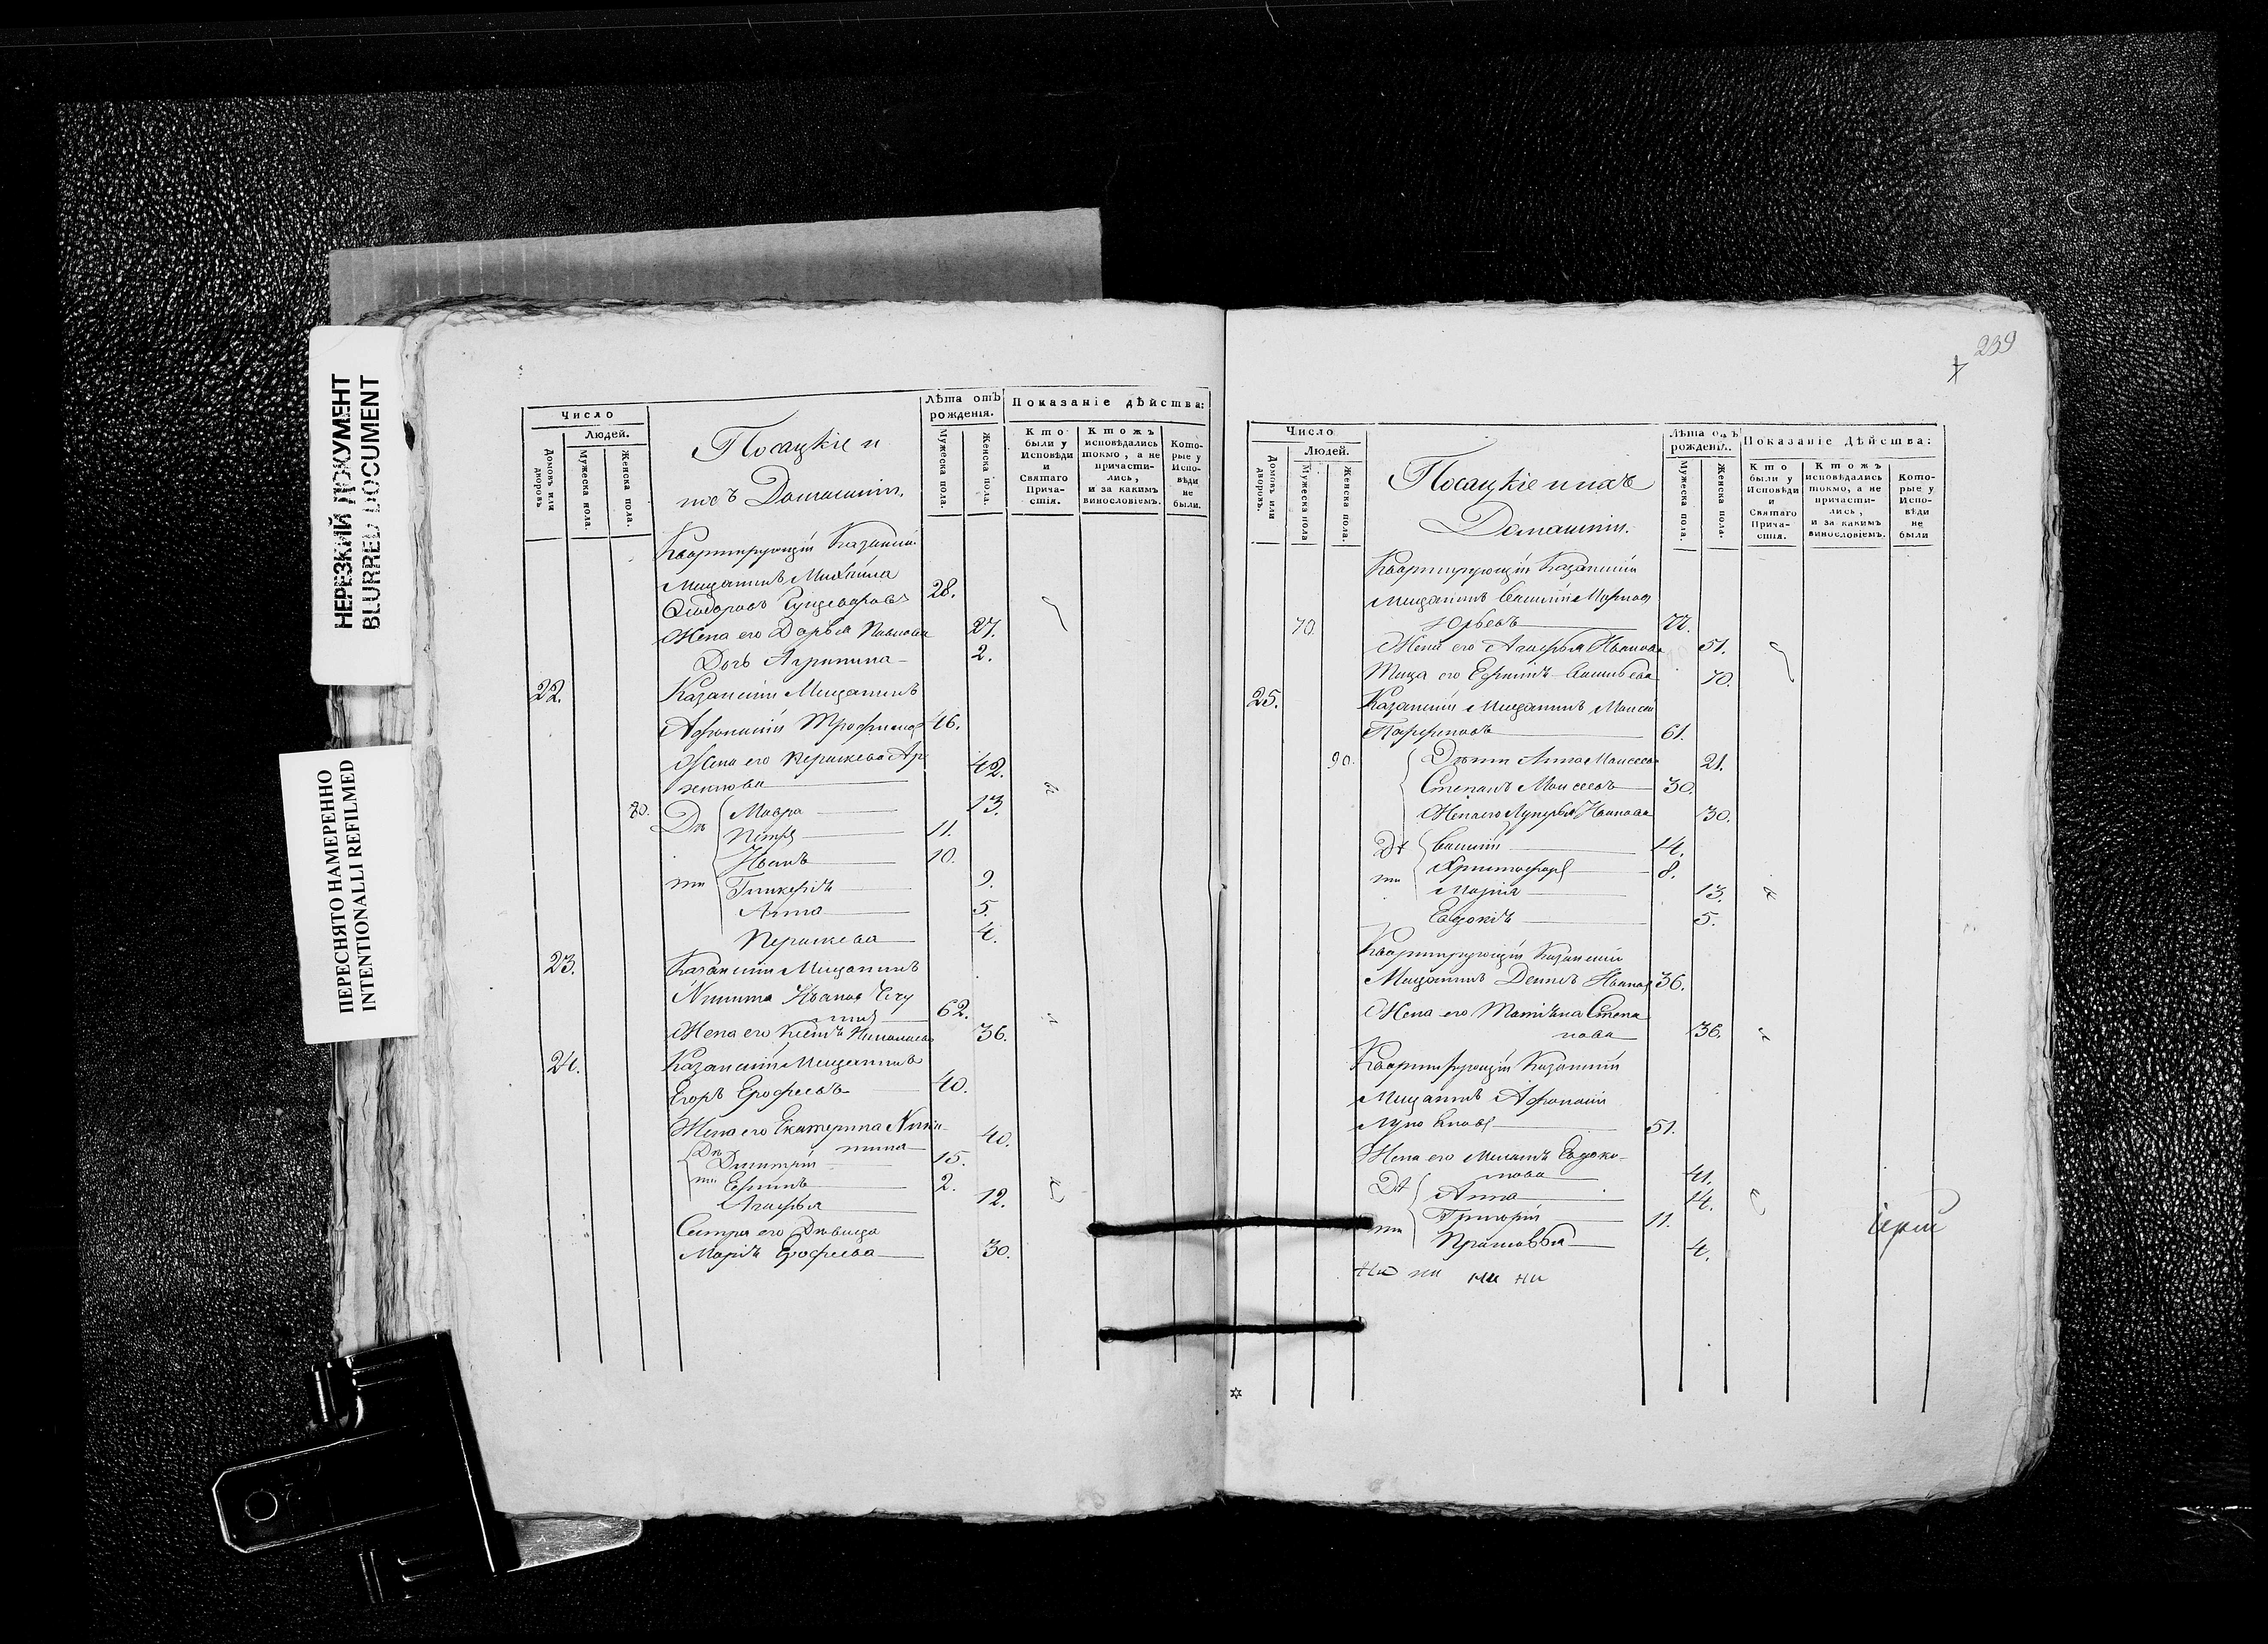 НЕРЕЗКИЙ ДОКУМЕНТ
BLURRED DOCUMENT
ПЕРЕСНЯТО НАМЕРЕННО
INTENTIONALLI REFILMED
Число
Людей.
Домовъ или дворовъ.
Мужеска пола.
Женска пола.
Посацкіе и
ихъ Домашніи.
Лѣта отъ рожденія.
Мужеска пола.
Женска пола.
Показаніе дѣйства:
Кто были у Исповѣди и Святаго Причастія.
Ктожъ исповѣдались токмо, а не причастились, и за какимъ винословіемъ.
Которые у Исповѣди не были.
Квартирующій Казанскій
Мещанинъ Михаила
Ѳеодоровъ 28.
Жена его Дарья Павлова 27.
Дочь Агрипина 2.
22. Казанскій Мещанинъ
Афонасій Трофимовъ 46.
Жена его Пераскева Ар
42.
80. Дѣ Мавра 13.
Петръ 11.
Иванъ 10.
ти Гликерія 9.
Анна 5.
Пераскева 4.
23. Казанскій Мещанинъ
Никита Ивановъ
62.
Жена его Николаева 36.
24. Казанскій Мещанинъ
Егоръ Ерофеевъ 40.
Жена его Екатерина Ники-
тина 40.
Дѣ Димитрій 15.
ти 2.
Агафья 12.
Сестра его Дѣвица
Марія Ерофеева 30.
239
Число
Людей.
Домовъ или дворовъ.
Мужеска пола
Женска пола.
Посацкіе и ихъ
Домашніи.
Лѣта отъ рожденія.
Мужеска пола.
Женска пола.
Показаніе Дѣйства:
Кто были у Исповѣди и Святаго Причастія.
Ктожъ исповѣдались токмо, а не причастились, и за какимъ винословіемъ.
Которые у Исповѣди не были
Квартирующій Казанскій
Мещанинъ Василій
70. Юрьевъ 77.
Жена его Агафья Иванова 51.
Теща его 70.
25. Казанскій Мещанинъ Моисей
Парфеновъ 61.
90. Дѣти Анна Моисеева 21.
Степанъ Моисеевъ 30.
Жена его Лукерья Иванова 30.
Дѣ Василій 14.
ти Христофоръ 8.
Марія 13.
Евдокія 5.
Квартирующій Казанскій
Мещанинъ Денисъ Ивановъ 36.
Жена его Матрена Степа
нова 36.
Квартирующій Казанскій
Мещанинъ Афонасій
51.
Жена его Евдоки-
мова 41.
Дѣ Анна 14.
ти Григорій 11.
Прасковья 4.
іерей